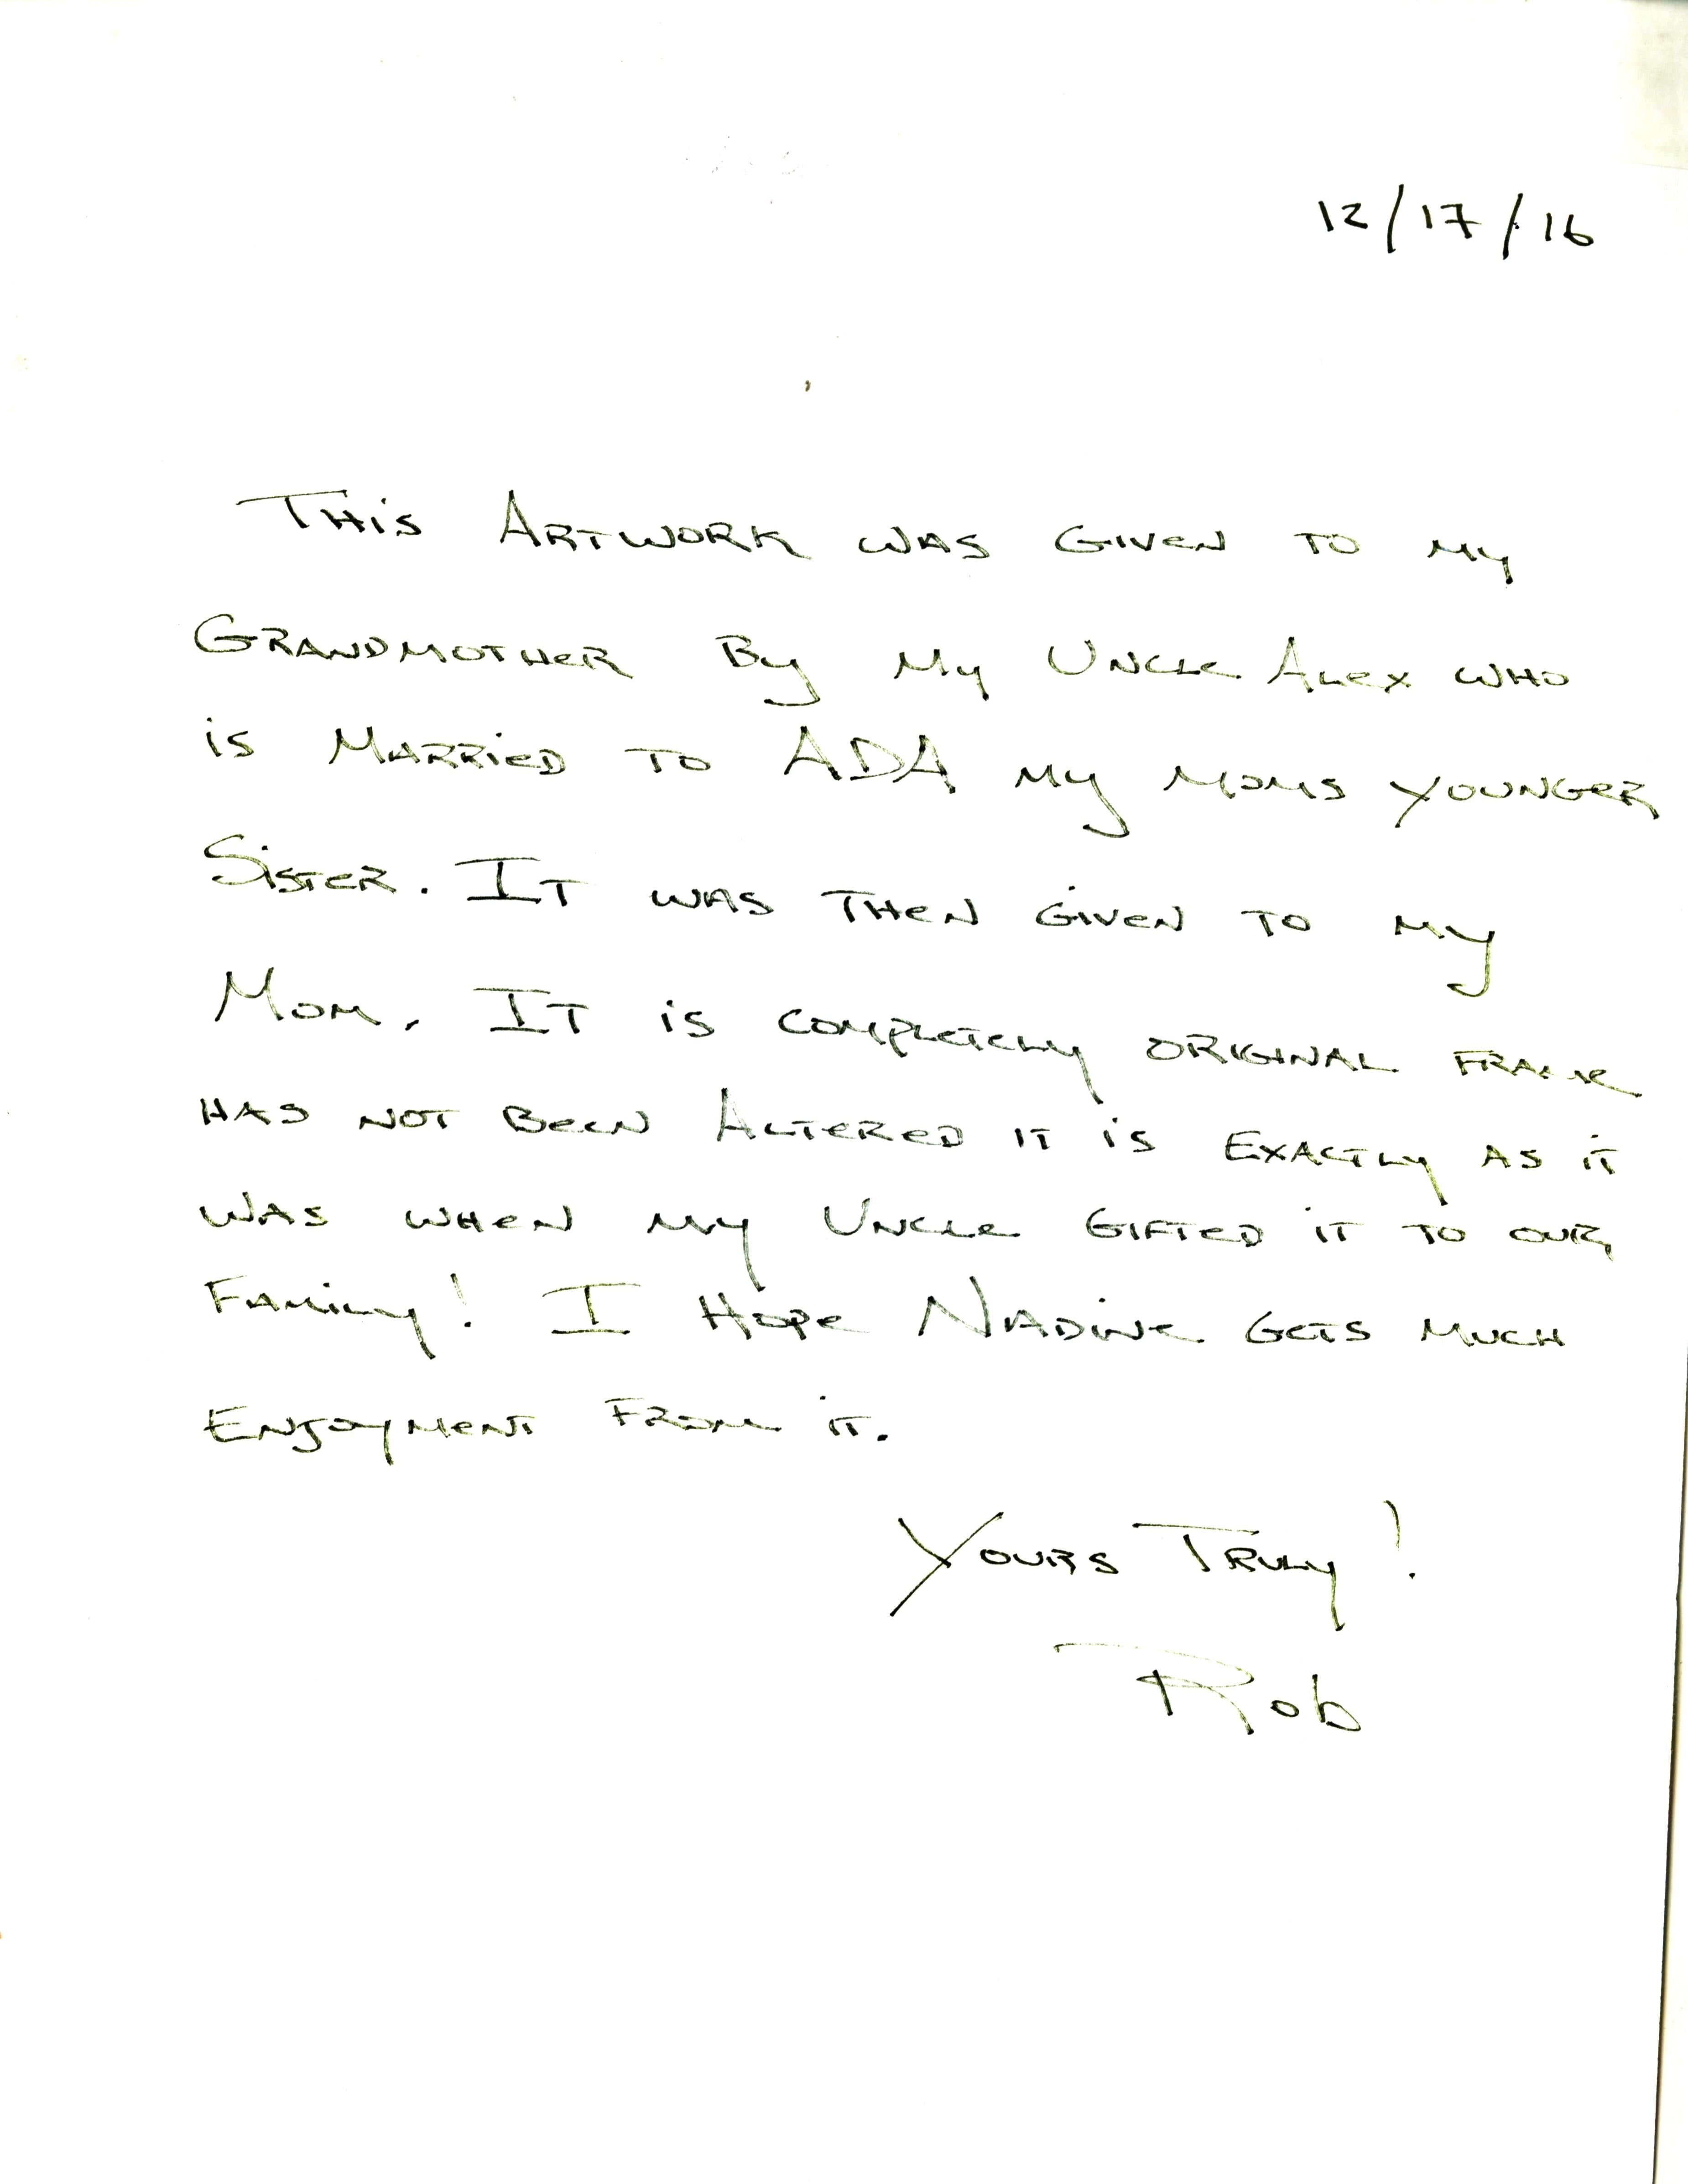 12/17/16
This Artwork was given to my
Grandmother By my Uncle Alex who
is Married to ADA my moms younger
Sister. It was then given to my
Mom. It is completely original frame
has not been Altered it is Exactly as it
was when my Uncle Gifted it to our
Family! I Hope Nadine gets much
Enjoyment from it.
Yours Truly!
Rob